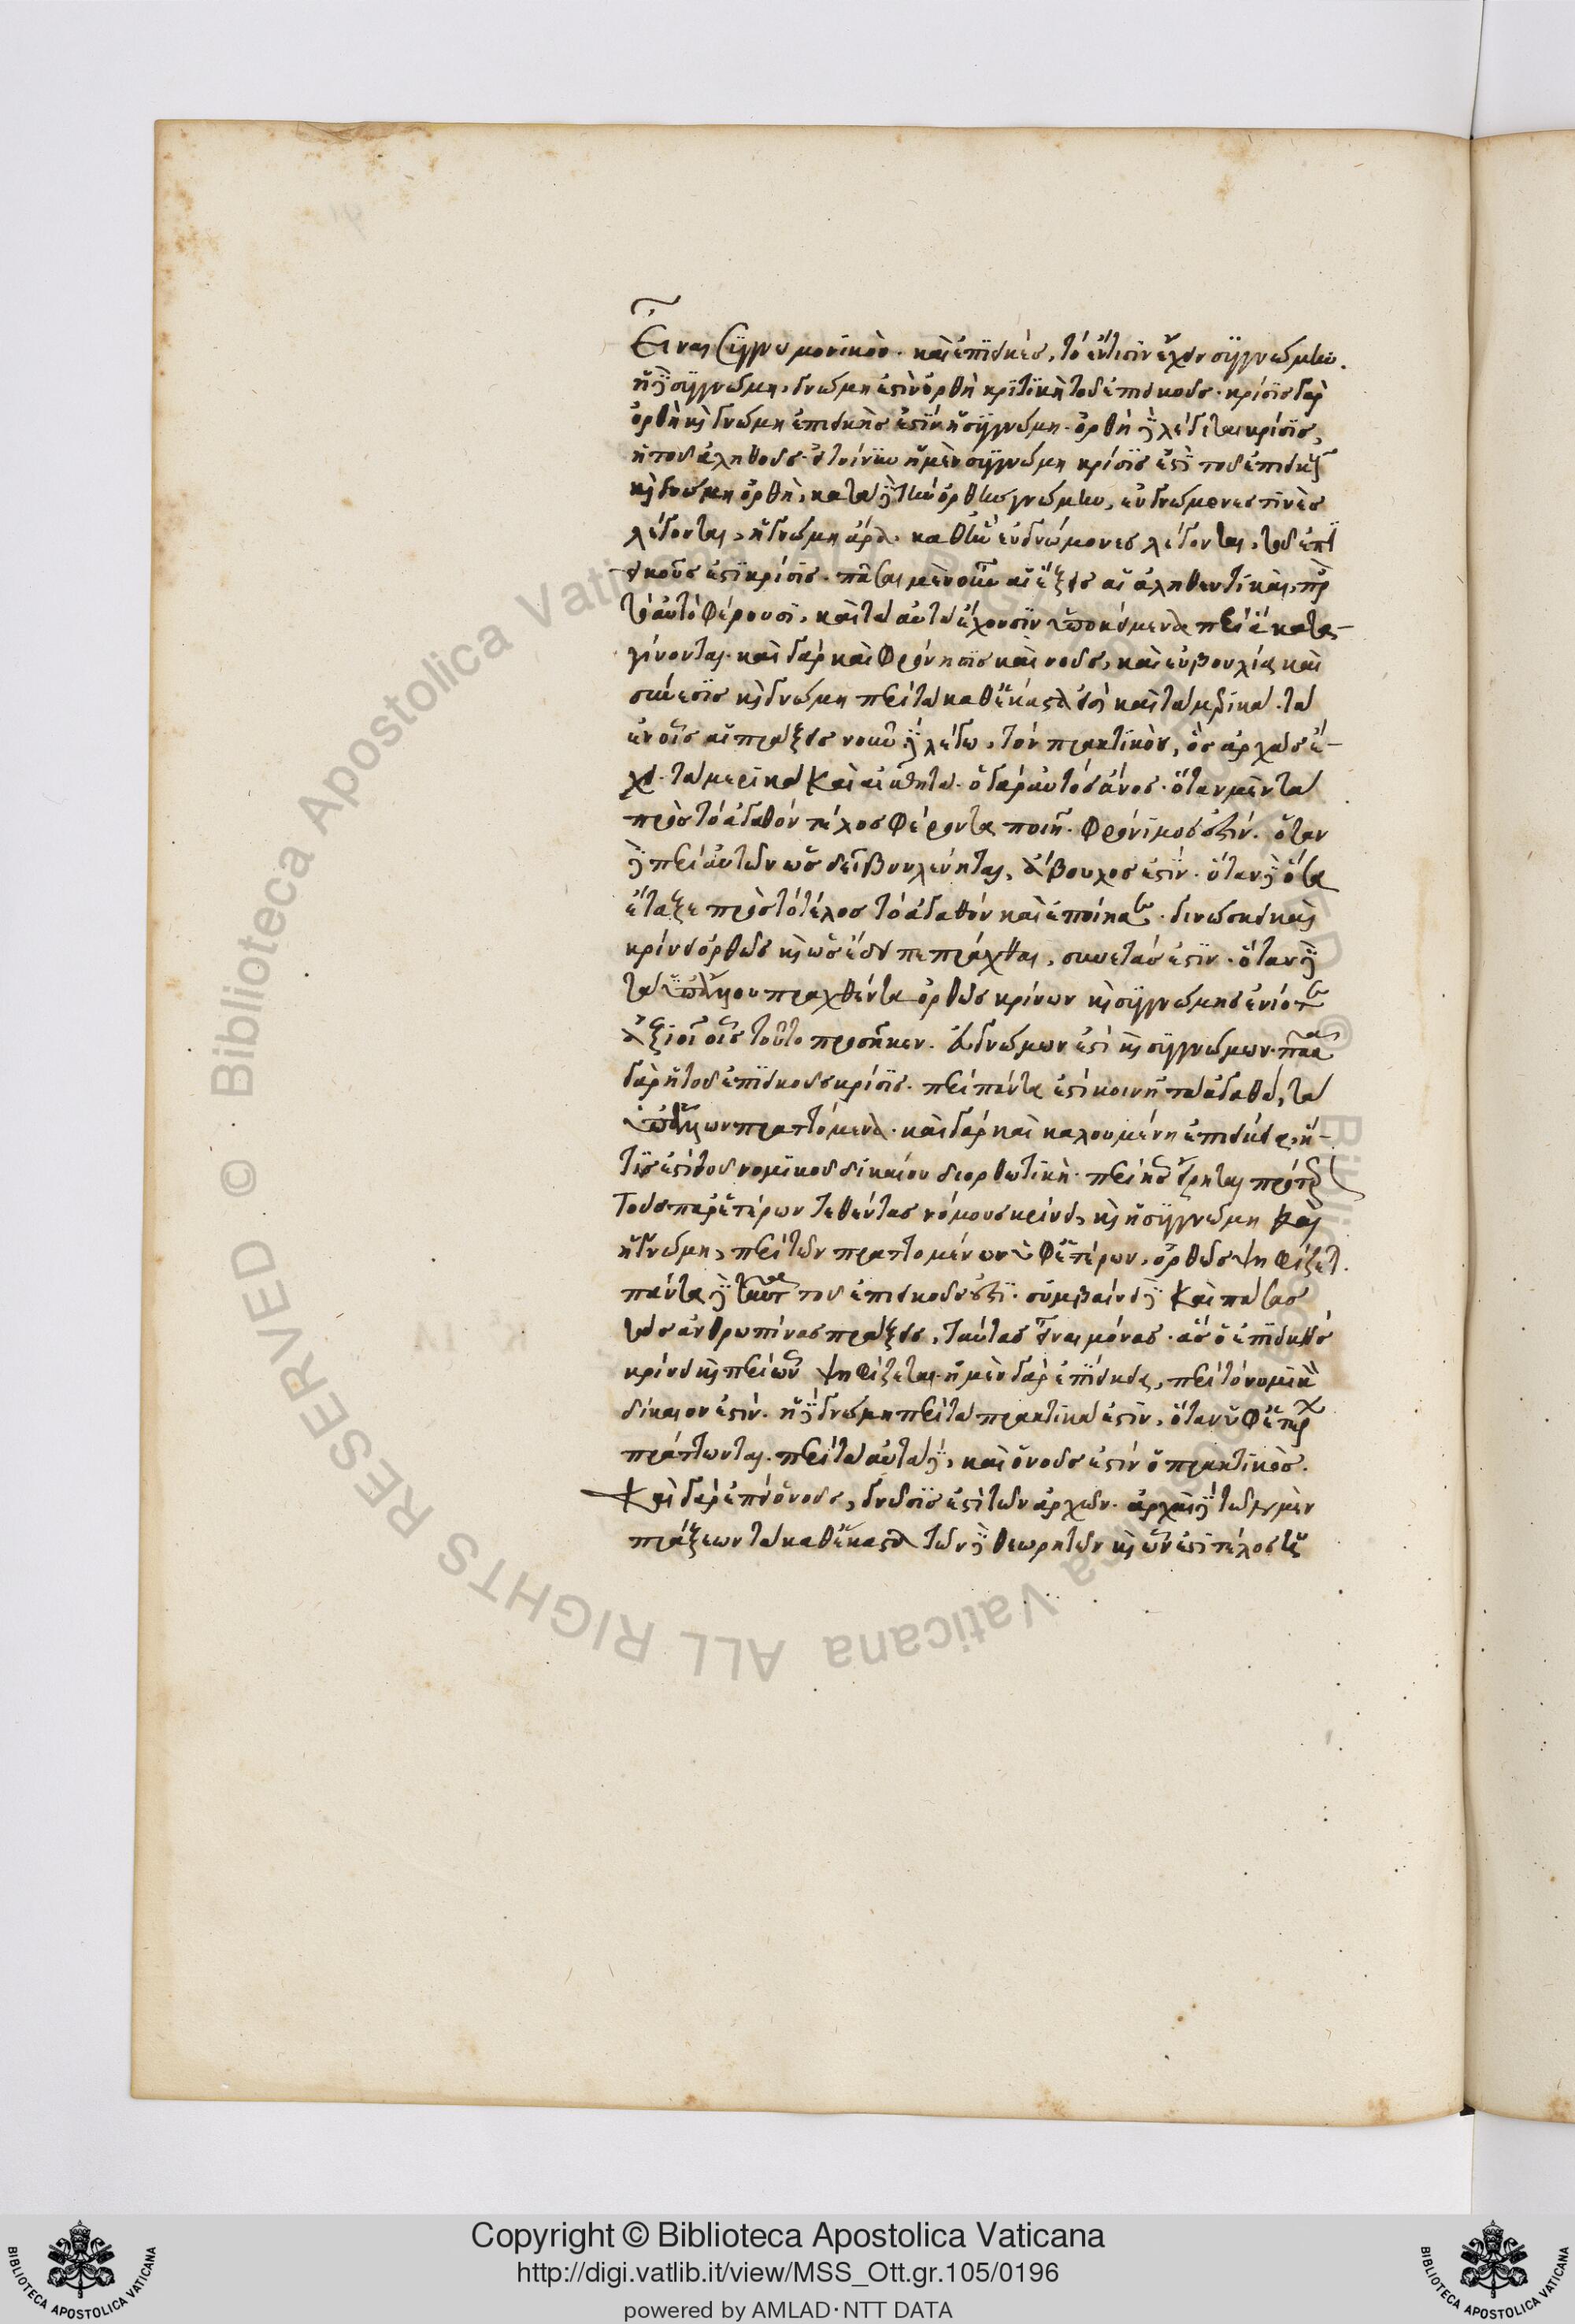 εἶναι συγγνωμονικὸν. καὶ ἐπιεικὲς, τὸ ἔν τισιν ἔχειν συγγνώμην.
ἡ δὲ συγγνώμη, γνώμη ἐστὶν ὀρθὴ κριτικὴ τοῦ ἐπιεικοῦς. κρίσις γὰρ
ὀρθὴ καὶ γνώμη ἐπιεικής ἐστιν ἡ συγγνώμη. ὀρθὴ δὲ λέγεται κρίσις,
ἡ τοῦ ἀληθοῦς. εἰ τοίνυν ἡ μὲν συγγνώμη κρίσις ἐστὶ τοῦ ἐπιεικοῦς
καὶ γνώμη ὀρθὴ, κατὰ δὲ τὴν ὀρθὴν γνώμην, εὐγνώμονες τινὲς
λέγονται, ἡ γνώμη ἄρα, καθ' ἣν εὐγνώμονες λέγονται, τοῦ ἐπι
εικοῦς ἐστι κρίσις. πᾶσαι μὲν οὖν αἱ ἕξεις αἱ ἀληθευτικαὶ, πρὸς
τὸ αὐτὸ φέρουσι, καὶ τὰ αὐτὰ ἔχουσιν ὑποκείμενα περὶ ἃ κατα-
γίνονται. καὶ γὰρ καὶ φρόνησις καὶ νοῦς, καὶ εὐβουλία καὶ
σύνεσις καὶ γνώμη περὶ τὰ καθ' ἕκαστά εἰσι καὶ τὰ μερικά. τὰ
ἐν οἷς αἱ πράξεις νοῦν δὲ λέγω, τὸν πρακτικὸν, ὃς ἀρχὰς ἔ-
χει τὰ μερικὰ καὶ αἰσθητά. ὁ γὰρ αὐτὸς ἄνος. ὅταν μὲν τὰ
πρὸς τὸ ἀγαθὸν τέλος φέροντα ποιῇ. φρόνιμός ἐστιν. ὅταν
δὲ περὶ αὐτῶν ὡς δεῖ βουλεύηται, εὔβουλος ἐστίν. ὅταν δὲ ὅσα
ἔταξε πρὸς τὸ τέλος τὸ ἀγαθὸν καὶ ἐποίησε. γινώσκει καὶ
κρίνει ὀρθῶς καὶ ὡς ἔδει πεπράχθαι, συνετός ἐστιν. ὅταν δὲ
τὰ ὑπ' ἄλλου πραχθέντα ὀρθῶς κρίνων καὶ συγγνώμης ἐνίοτε
ἀξιοῖ οἷς τοῦτο προσῆκεν. εὐγνώμων ἐστὶ καὶ συγγνώμων. πᾶσα
γὰρ ἡ τοῦ ἐπιεικοῦς κρίσις. περὶ πάντα ἐστὶ κοινῇ τὰ ἀγαθά, τὰ
ὑπ' ἄλλων πραττόμενα. καὶ γὰρ καὶ καλουμένη ἐπιείκεια, ἥ-
τις ἐστὶ τοῦ νομικοῦ δικαίου διορθωτική. περὶ ἧς εἴρηται πρότερον
τοὺς παρ' ἑτέρων τεθέντας νόμους κρίνει, καὶ ἡ συγγνώμη καὶ
ἡ γνώμη, περὶ τῶν πραττομένων ὑφ' ἑτέρων, ὀρθῶς ψηφίζεται.
πάντα δὲ ταῦτα τοῦ ἐπιεικοῦς ἐστι. συμβαίνει δὲ καὶ πάσας
τὰς ἀνθρωπίνας πράξεις, ταύτας εἶναι μόνας. ἃς ὁ ἐπιεικὴς
κρίνει καὶ περὶ ὧν ψηφίζεται. ἡ μὲν γὰρ ἐπιείκεια, περὶ τὸ νομικὸν
δίκαιον ἐστίν. ἡ δὲ γνώμη περὶ τὰ πρακτικά ἐστιν, ὅταν ὑφ' ἑτέρων
πράττωνται. περὶ τὰ αὐτὰ δὲ, καὶ ὁ νοῦς ἐστὶν ὁ πρακτικός.
καὶ γὰρ ἐπεὶ ὁ νοῦς, γνῶσις ἐστὶ τῶν ἀρχῶν. ἀρχαὶ δὲ τῶν μὲν
πράξεων τὰ καθ' ἕκαστα τῶν δὲ θεωρητῶν καὶ ὧν ἐστὶ τέλος τὸ
Copyright © Biblioteca Apostolica Vaticana
http://digi.vatlib.it/view/MSS_Ott.gr.105/0196
powered by AMLAD·NTT DATA